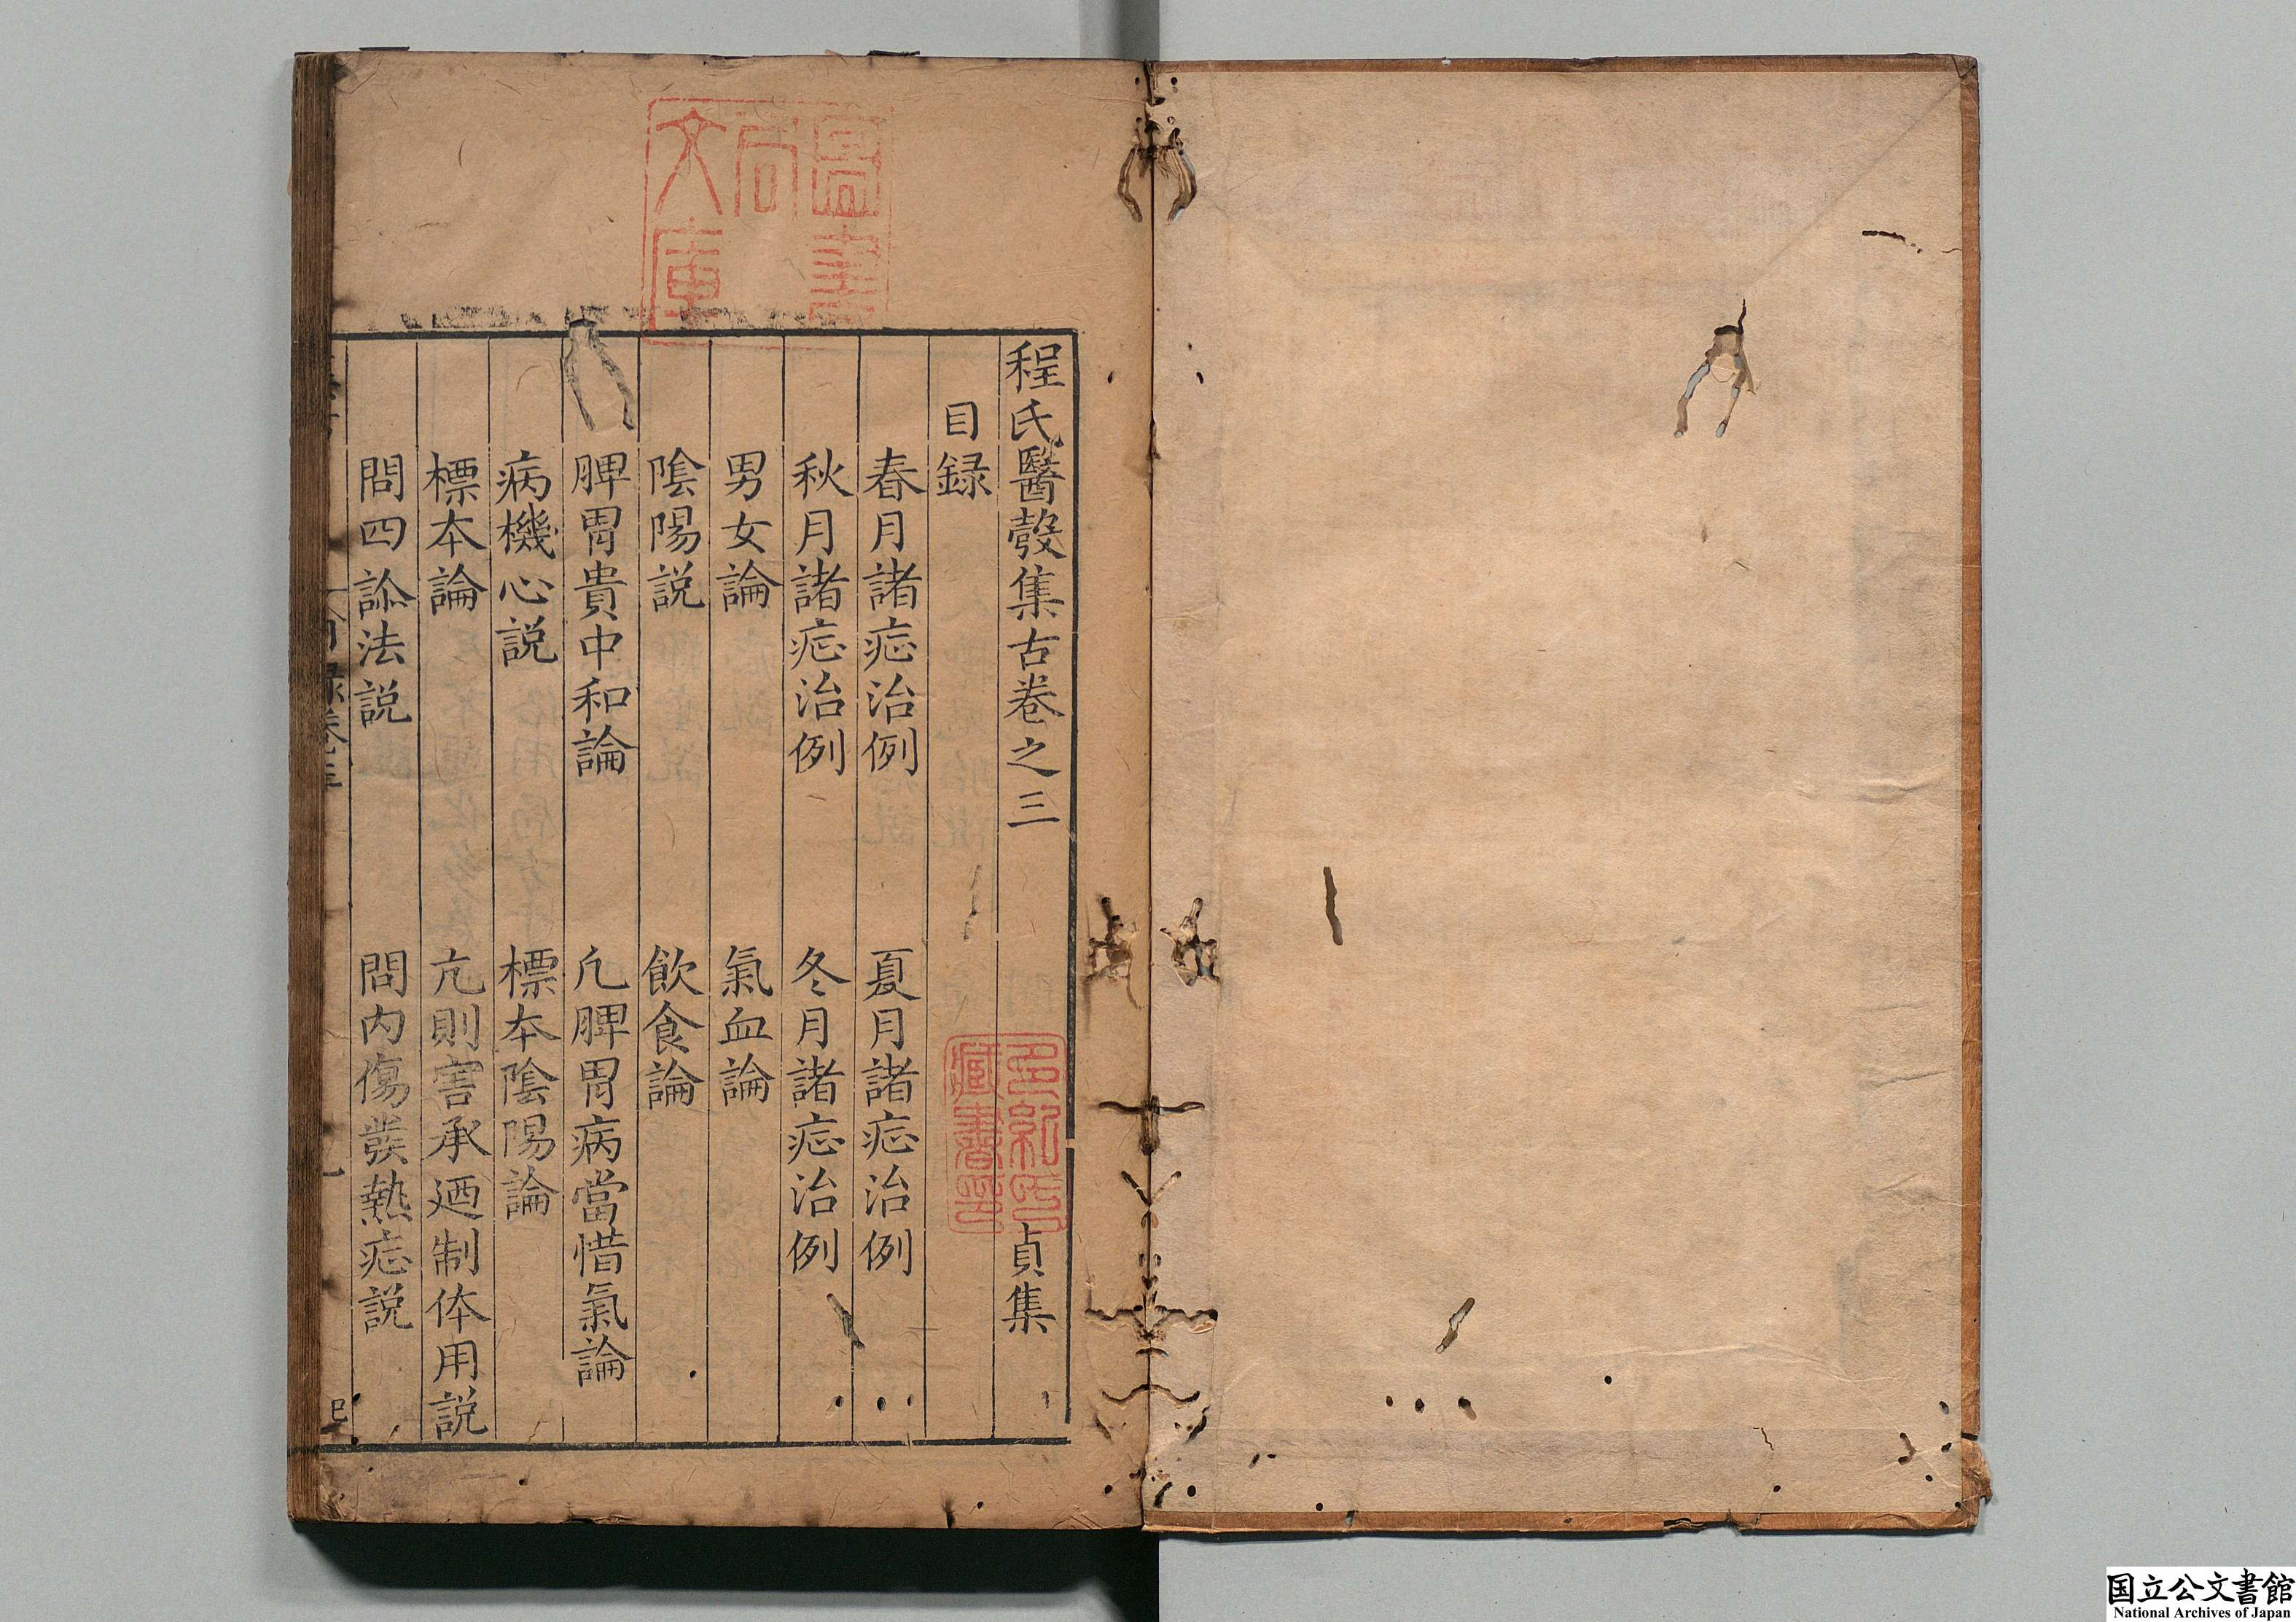 程氏醫彀集古卷之三 貞集
目録
春月諸症治例 夏月諸症治例
秋月諸症治例 冬月諸症治例
男女論 氣血論
陰陽説 飲食論
脾胃貴中和論 凢脾胃病當惜氣論
病機心説 標本陰陽論
標本論 亢則害承廼制体用説
問四診法説 問内傷發熱症説
圖書
局
文庫
多紀氏
藏書印
国立公文書館
National Archives of Japan